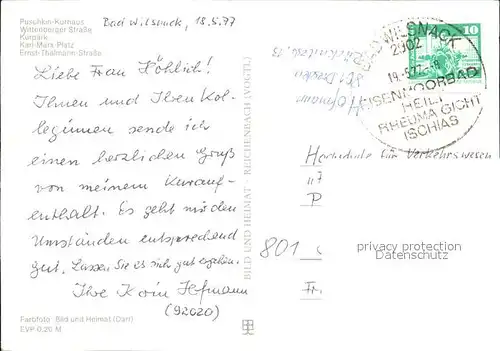 Puschkin-Kurhaus
Wittenberger Straße
Kurpark
Karl-Marx-Platz
Ernst-Thälmann-Straße
Bad Wilsnack, 18.5.77
Liebe Frau Höhlich!
Ihnen und Ihren Kol-
leginnen sende ich
einen herzlichen Gruß
von meinem Kurauf-
enthalt. Es geht mir den
Umständen entsprechend
gut. Lassen Sie es sich gut ergehen.
Ihre Karin Hofmann
(92020)
Farbfoto: Bild und Heimat (Darr)
EVP 0,20 M
BILD UND HEIMAT · REICHENBACH (VOGTL)
Hofmann
801 Dresden
BAD WILSNACK
2902
EISENMOORBAD
HEILT
RHEUMA GICHT
ISCHIAS
10
Hochschule für Verkehrswesen
"F
P
801
Fr.
privacy protection
Datenschutz